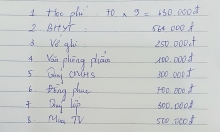 1 Học phí 70 x 9 = 630.000đ
2 BHYT = 564.000đ
3 Vở ghi 250.000đ
4 Văn phòng phẩm 100.000đ
5 Quỹ CMHS 300.000đ
6 Đồng phục 150.000đ
7 Quỹ lớp 300.000đ
8 Mua TV 500.000đ